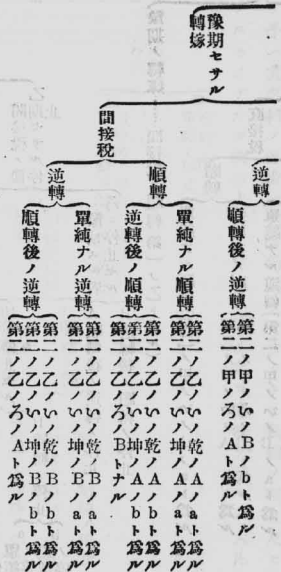 豫期セサル
轉嫁
逆轉
順轉後ノ逆轉
第二ノ甲ノいノBノbト爲ル
第二ノ甲ノろノAト爲ル
間接稅
順轉
單純ナル順轉
第二ノ乙ノいノ乾ノAノaト爲ル
第二ノ乙ノいノ坤ノAノaト爲ル
逆轉後ノ順轉
第二ノ乙ノいノ乾ノAノbト爲ル
第二ノ乙ノいノ坤ノAノbト爲ル
第二ノ乙ノろノBトナル
逆轉
單純ナル逆轉
第二ノ乙ノいノ乾ノBノaト爲ル
第二ノ乙ノいノ坤ノBノaト爲ル
順轉後ノ逆轉
第二ノ乙ノいノ乾ノBノbト爲ル
第二ノ乙ノいノ坤ノBノbト爲ル
第二ノ乙ノろノAト爲ル